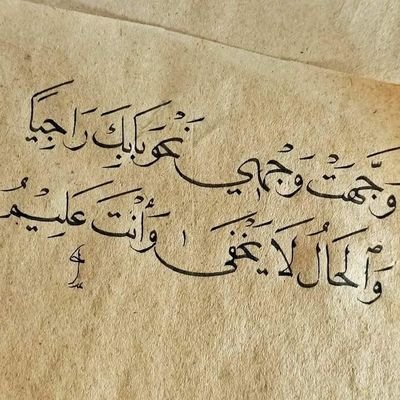 وَجَّهتْ وَجْهِي نَحْوَ بَابِكَ رَاجِيًا
وَالحَالُ لَا يَخْفَى وَأَنْتَ عَلِيْمُ